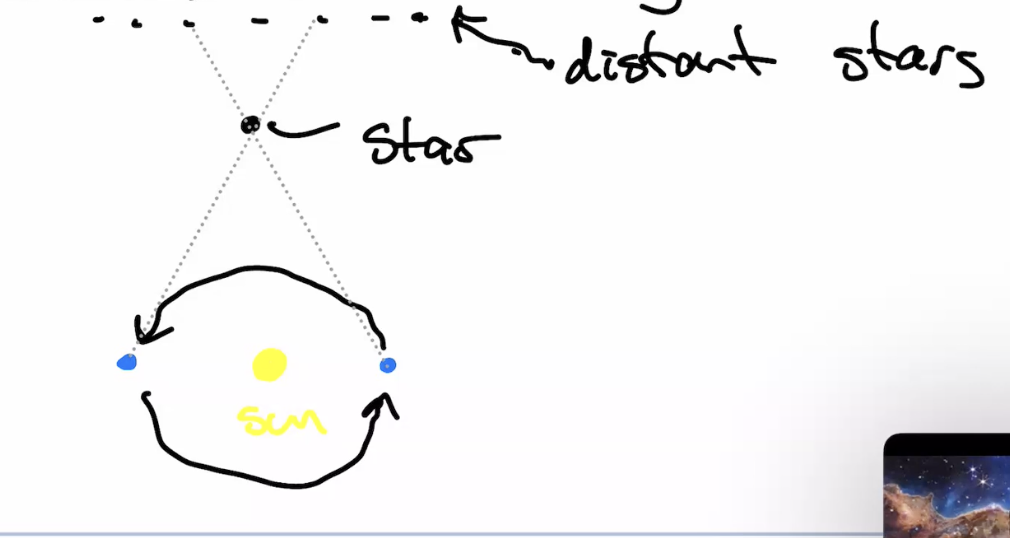 distant stars
Star
Sun